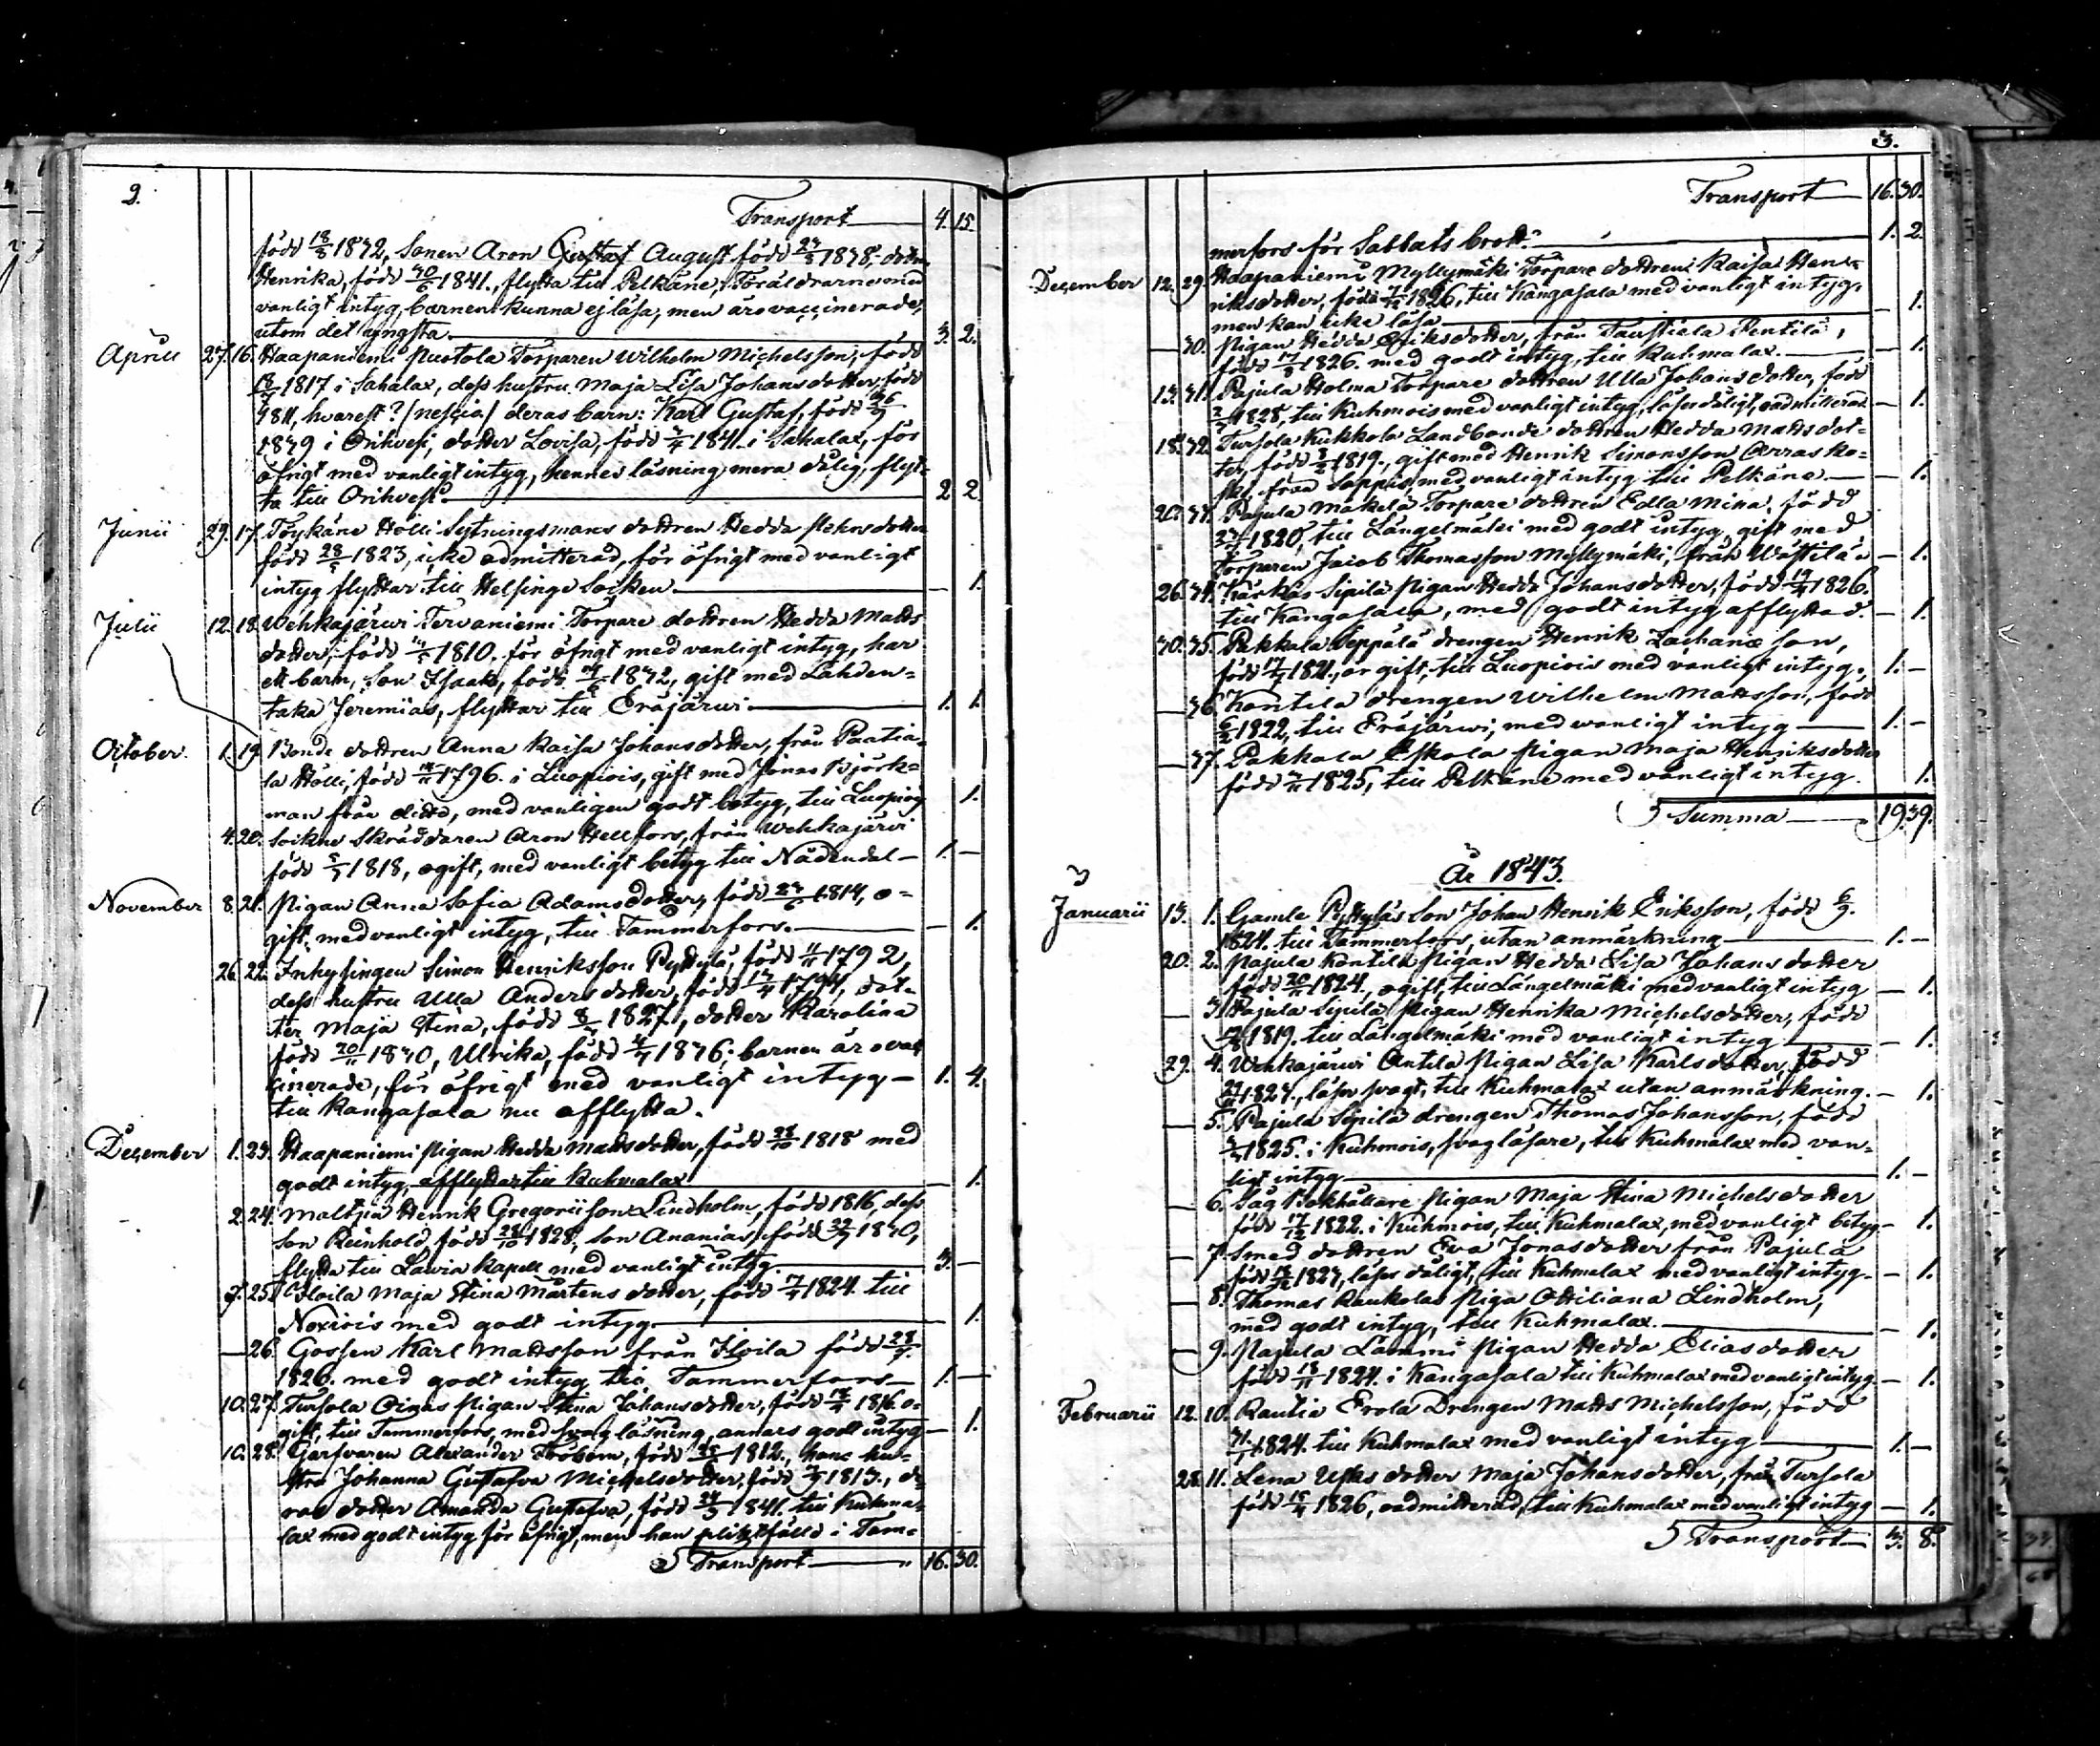 2.
Transport 4. 15
född 18/8 1832, Sonen Aron Gustaf August född 1838, dottn
Henrika, född 30/6 1841., flytta till Pelkäne, Föräldrarne med
vanligt intyg, barnen kunna ej läsa, men äro vaccinerade,
utom det yngsta. 3. 2.
Aprill 27. 16. Haapaniemi Torparen Wilhelm Michelsson, född
1817 i Sahalax, dess hustru Maja Lisa Johansdotter, född
1811, hvarest? (nescia) deras barn: Karl Gustaf, född
1839 i Orihvesi, dotter Lovisa, född 1841. i Sahalax, för
öfrigt med vanligt intyg, hennes läsning mera dålig, flyt-
ta till Orihvesi. 2 2.
Junii 29. 17. Töykäne Hölli Sytningsmans dottren Hedda dotter
född 1823, icke admitterad, för öfrigt med vanligt
intyg flyttar till Helsinge Socken. — 1.
Julii 12. 18. Wehkajärwi Tervaniemi Torpare dottren Hedda Matts
dotter, född 1810. för öfrigt med vanligt intyg, har
ett barn, Son Isaak, född 1832, gift med Lahden-
taka Jeremias, flyttar till Eräjärwi. 1. 1.
October. 1. 19. Bonde dottren Anna Kaisa Johansdotter, från Paatia-
la Hölli, född 1796. i Luopiois, gift med Jonas Björk-
man från ditto, med vanligen godt betyg, till Luopiois 1.
4. 20. Sockne Skräddaren Aron Hellfors, från Wehkajärwi
född 1818, ogift, med vanligt betyg till Nådendal — 1. —
November 8. 21. Pigan Anna Sofia Adamsdotter, född 1814, o-
gift, med vanligt intyg, till Tammerfors. — 1.
26. 22. Inhysingen Simon Henriksson Pyttylä, född 1792,
dess hustru Ulla Andersdotter, född 1794, dot-
ter Maja Stina, född 1827, dotter Karolina
född 1830, Ulrika, född 1836: barnen äro vac
cinerade, för öfrigt med vanligt intyg — 1. 4.
till Kangasala nu afflytta.
December 1. 23. Haapaniemi Pigan Hedda Mattsdotter, född 1818 med
godt intyg, afflyttar till Kuhmalax — 1.
2. 24. Henrik Gregorii Son Lindholm, född 1816, dess
Son Reinhold, född 28/10 1828, Son Ananias, född 1830,
flytta till Lawia Kapell med vanligt intyg. 3. —
7. 25. Hoila Maja Stina Mårtensdotter, född 1824. till
med godt intyg. 1.
— 26. Gossen Karl Mattsson från Hoila född
1826. med godt intyg till Tammerfors — 1. —
10. 27. Tursola Oinas Pigan Stina Johansdotter, född 1816. o-
gift, till Tammerfors, med svag läsning, annars godt intyg — 1.
10. 28. Garfvaren Alexander, född 1812., hans hu-
stru Johanna Gustafva Michelsdotter, född 1813., de-
ras dotter Amanda Gustafva, född 1841. till Kuhma-
lax med godt intyg för öfrigt, men han pliktfälld i Tam-
Transport " 16. 30.
3.
Transport 16. 30.
merfors för Sabbats brott. 1. 2.
December 12. 29. Haapaniemi Myllymäki Torpare dottren Kaisa Hen-
riksdotter, född 1826, till Kangasala med vanligt intyg,
men kan icke läsa — 1.
— 30. Pigan Hedda Eriksdotter, från Taustiala Pentilä,
född 1826. med godt intyg, till Kuhmalax. — 1.
13. 31. Pajula Holma Torpare dottren Ulla Johansdotter, född
1825, till Kuhmois med vanligt intyg, läser dåligt, oadmitterad — 1.
18. 32. Tursola Kukkola Landbonde dottren Hedda Matts dot-
ter, född 1819., gift med Henrik Simonsson
från med vanligt intyg till Pelkäne. — 1.
20. 33. Pajula Mäkelä Torpare dottren Edla Mina, född
1820, till Längelmäki med godt intyg, gift med
Torparen Jacob Thomasson Myllymäki, från — 1.
26. 34. Kärkäs Sipilä Pigan Hedda Johansdotter, född 1826.
till Kangasala, med godt intyg afflyttad. — 1.
30. 35. Pakkala Seppälä drengen Henrik Zachariæ Son,
född 1821., är gift, till Luopiois med vanligt intyg., 1. —
— 36. Kantila drengen Wilhelm Mattsson, född
1822, till Eräjärwi, med wanligt intyg — 1. —
— 37. Pakkala Eskola Pigan Maja Henriksdotter
född 1825, till Pelkäne med vanligt intyg. 1.
Summa 19. 39.
År 1843.
Januarii 13. 1. Gamle Pyttyläs Son Johan Henrik Eriksson, född 6/9.
1824. till Tammerfors, utan anmärkning 1. —
20. 2. Pajula Kantila Pigan Hedda Lisa Johansdotter
född 1824, ogift, till Längelmäki med vanligt intyg — 1.
— 3. Pajula Sipilä Pigan Henrika Michelsdotter, född
1819. till Längelmäki med vanligt intyg — 1.
29. 4. Wehkajärwi Antila Pigan Lisa Karlsdotter, född
1827., läser svagt, till Kuhmalax utan anmärkning. — 1.
— 5. Pajula Sipilä drengen Thomas Johansson, född
1825. i Kuhmois, svag läsare, till Kuhmalax med van-
ligt intyg 1. —
— 6. Såg Bokhållare Pigan Maja Stina Michelsdotter
född 17/12 1822. i Kuhmois, till Kuhmalax, med vanligt betyg — 1.
— 7. Smed dottren Eva Jonasdotter från Pajula
född 1827, läser dåligt, till Kuhmalax med vanligt intyg. — 1.
— 8. Thomas Raukolas Piga Ottiliana Lindholm,
med godt intyg, till Kuhmalax. — 1.
— 9. Pajula Lammi Pigan Hedda Eliasdotter
född 18/11 1824. i Kangasala till Kuhmalax med vanligt intyg — 1.
Februarii 12. 10. Rautia Erola Drengen Matts Michelsson, född
1824. till Kuhmalax med vanligt intyg 1. —
28. 11. Lena dotter Maja Johansdotter, från Tursola
född 1826, oadmitterad, till Kuhmalax med vanligt intyg — 1.
Transport 3. 8.